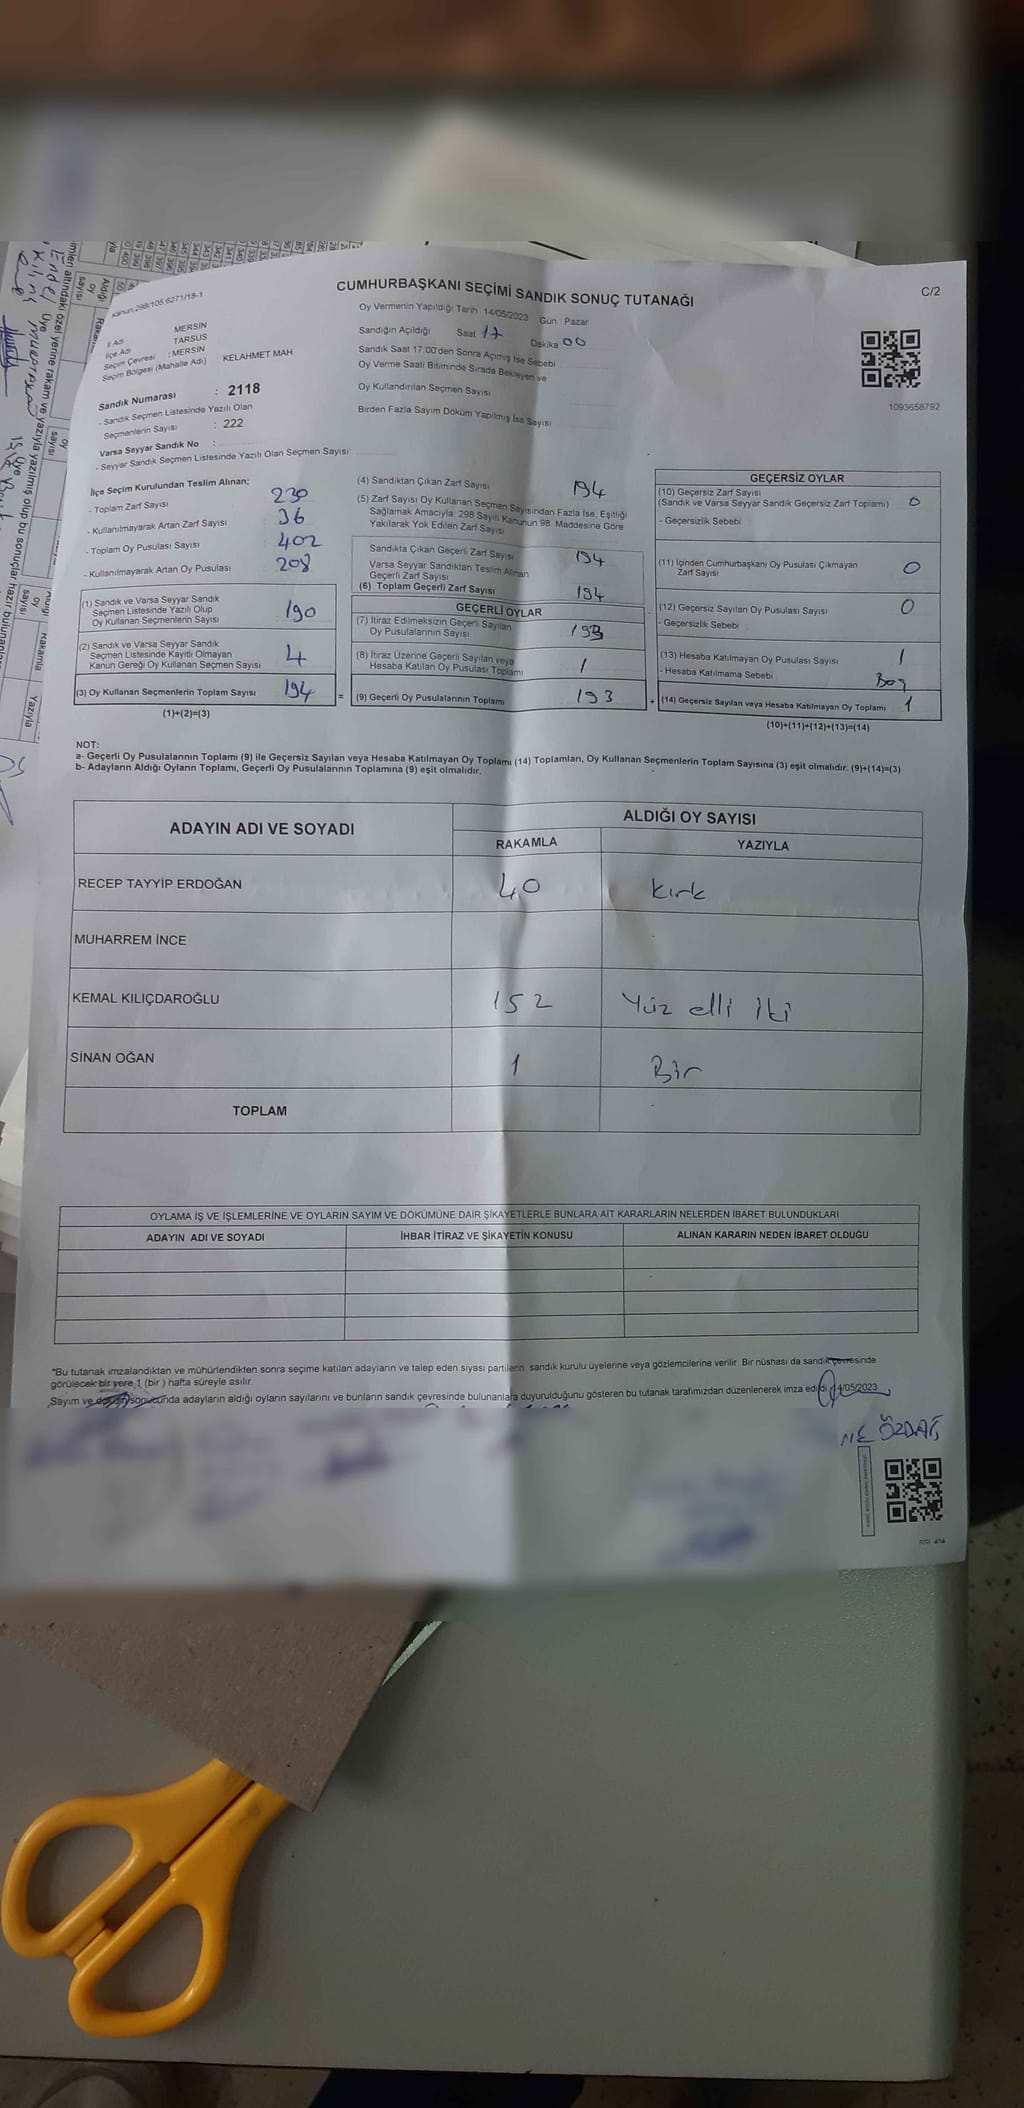 CUMHURBAŞKANI SEÇİMİ SANDIK SONUÇ TUTANAĞI
C/2
Kanun 298/105.6271/18-1
Oy Vermenin Yapıldığı Tarih 14/05/2023 Gün Pazar
İl Adı MERSİN
İlçe Adı TARSUS
Seçim Çevresi : MERSİN
Seçim Bölgesi (Mahalle Adı) : KELAHMET MAH
Sandığın Açıldığı Saat 17 Dakika 00
Sandık Saat 17:00'den Sonra Açımış İse Sebebi
Oy Verme Saati Bitiminde Sırada Bekleyen ve
Oy Kullandırılan Seçmen Sayısı
Birden Fazla Sayım Döküm Yapılmış İse Sayısı
1093658792
Sandık Numarası : 2118
- Sandık Seçmen Listesinde Yazılı Olan
Seçmenlerin Sayısı : 222
Varsa Seyyar Sandık No :
- Seyyar Sandık Seçmen Listesinde Yazılı Olan Seçmen Sayısı:
İlçe Seçim Kurulundan Teslim Alınan;
- Toplam Zarf Sayısı 230
- Kullanılmayarak Artan Zarf Sayısı 36
- Toplam Oy Pusulası Sayısı 402
- Kullanılmayarak Artan Oy Pusulası 208
(1) Sandık ve Varsa Seyyar Sandık
Seçmen Listesinde Yazılı Olup
Oy Kullanan Seçmenlerin Sayısı 190
(2) Sandık ve Varsa Seyyar Sandık
Seçmen Listesinde Kayıtlı Olmayan
Kanun Gereği Oy Kullanan Seçmen Sayısı 4
(3) Oy Kullanan Seçmenlerin Toplam Sayısı 194
(1)+(2)=(3)
(4) Sandıktan Çıkan Zarf Sayısı 194
(5) Zarf Sayısı Oy Kullanan Seçmen Sayısından Fazla İse, Eşitliği
Sağlamak Amacıyla, 298 Sayılı Kanunun 98. Maddesine Göre
Yakılarak Yok Edilen Zarf Sayısı
Sandıkta Çıkan Geçerli Zarf Sayısı 194
Varsa Seyyar Sandıktan Teslim Alınan
Geçerli Zarf Sayısı
(6) Toplam Geçerli Zarf Sayısı 194
GEÇERLİ OYLAR
(7) İtiraz Edilmeksizin Geçerli Sayılan
Oy Pusulalarının Sayısı 193
(8) İtiraz Üzerine Geçerli Sayılan veya
Hesaba Katılan Oy Pusulası Toplamı 1
= (9) Geçerli Oy Pusulalarının Toplamı 193 +
GEÇERSİZ OYLAR
(10) Geçersiz Zarf Sayısı
(Sandık ve Varsa Seyyar Sandık Geçersiz Zarf Toplamı) 0
- Geçersizlik Sebebi
(11) İçinden Cumhurbaşkanı Oy Pusulası Çıkmayan
Zarf Sayısı 0
(12) Geçersiz Sayılan Oy Pusulası Sayısı 0
- Geçersizlik Sebebi
(13) Hesaba Katılmayan Oy Pusulası Sayısı 1
- Hesaba Katılmama Sebebi Boş
(14) Geçersiz Sayılan veya Hesaba Katılmayan Oy Toplamı 1
(10)+(11)+(12)+(13)=(14)
NOT:
a- Geçerli Oy Pusulalarının Toplamı (9) ile Geçersiz Sayılan veya Hesaba Katılmayan Oy Toplamı (14) Toplamları, Oy Kullanan Seçmenlerin Toplam Sayısına (3) eşit olmalıdır. (9)+(14)=(3)
b- Adayların Aldığı Oyların Toplamı, Geçerli Oy Pusulalarının Toplamına (9) eşit olmalıdır.
ADAYIN ADI VE SOYADI
ALDIĞI OY SAYISI
RAKAMLA YAZIYLA
RECEP TAYYİP ERDOĞAN 40 kırk
MUHARREM İNCE
KEMAL KILIÇDAROĞLU 152 Yüz elli iki
SİNAN OĞAN 1 Bir
TOPLAM
OYLAMA İŞ VE İŞLEMLERİNE VE OYLARIN SAYIM VE DÖKÜMÜNE DAİR ŞİKAYETLERLE BUNLARA AİT KARARLARIN NELERDEN İBARET BULUNDUKLARI
ADAYIN ADI VE SOYADI İHBAR İTİRAZ VE ŞİKAYETİN KONUSU ALINAN KARARIN NEDEN İBARET OLDUĞU
*Bu tutanak imzalandıktan ve mühürlendikten sonra seçime katılan adayların ve talep eden siyasi partilerin sandık kurulu üyelerine veya gözlemcilerine verilir. Bir nüshası da sandık çevresinde
görülecek bir yere 1 (bir ) hafta süreyle asılır.
Sayım ve döküm sonucunda adayların aldığı oyların sayılarını ve bunların sandık çevresinde bulunanlara duyurulduğunu gösteren bu tutanak tarafımızdan düzenlenerek imza edildi. 14/05/2023
ÖZDAĞ